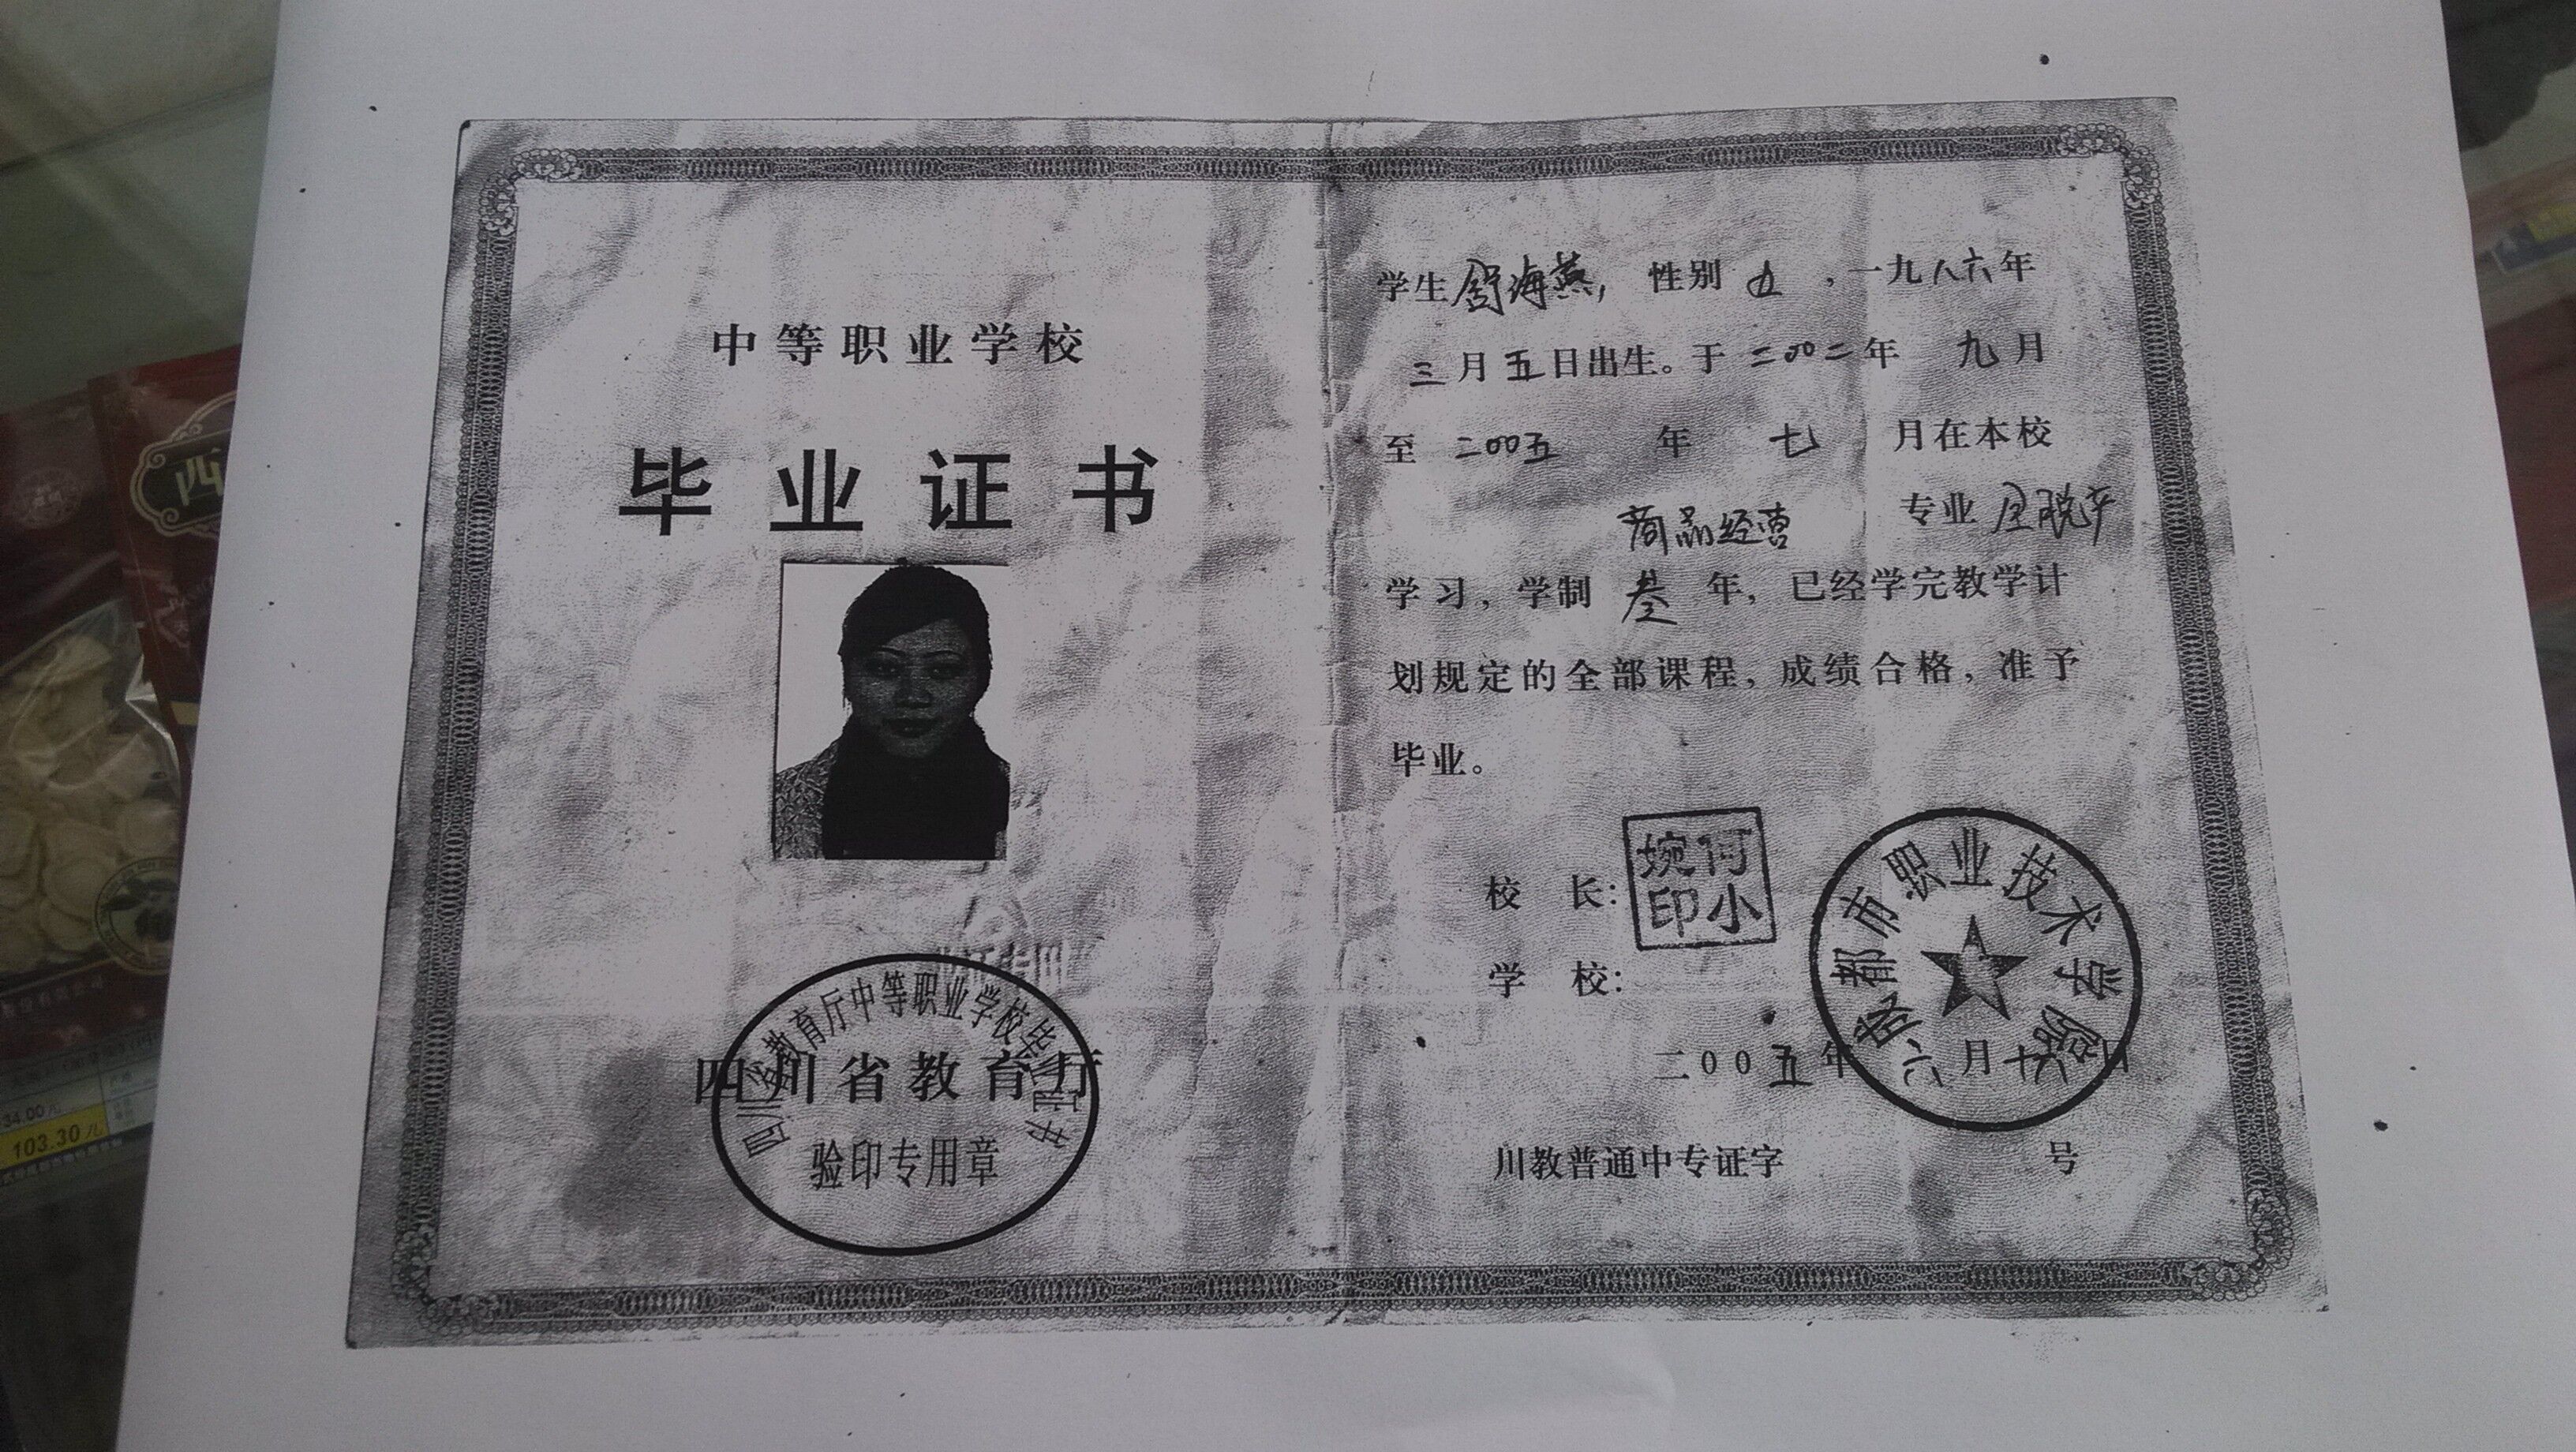 中等职业学校
毕业证书
四川省教育厅中等职业学校毕业证书
四川省教育厅
验印专用章
学生舒海燕,性别女,一九八六年
三月五日出生。于二00二年九月
至二00五年七月在本校
商品经营专业全脱产
学习,学制叁年,已经学完教学计
划规定的全部课程,成绩合格,准予
毕业。
校长:
何小婉印
学校:
成都市职业技术学院
二00五年六月十八日
川教普通中专证字 号
34.00元
103.30元